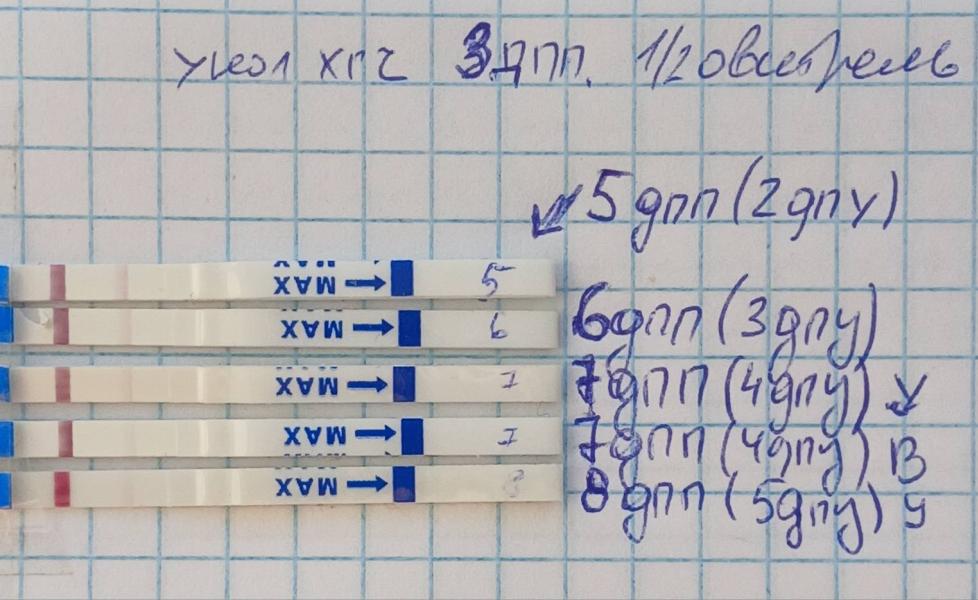 укол хгч 3дпп. 1/2 овитрель
5 дпп (2дпу)
MAX 5
6дпп (3дпу)
MAX 6
7дпп (4дпу) У
MAX 7
7дпп (4дпу) В
MAX 7
8дпп (5дпу) У
MAX 8